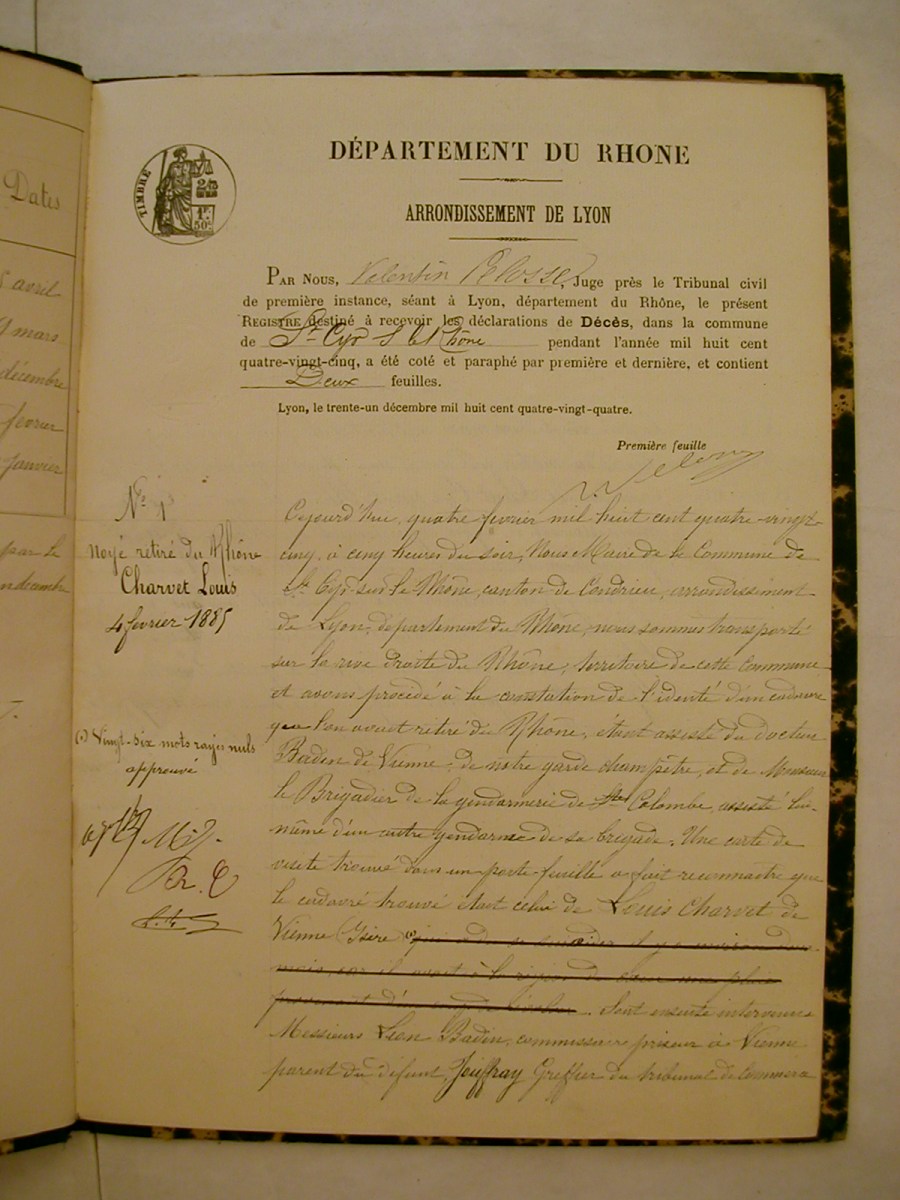 Dates
avril
mars
décembre
février
Janvier
par le
décembre
TIMBRE
2
1F
50c
DÉPARTEMENT DU RHONE
ARRONDISSEMENT DE LYON
PAR NOUS, Valentin Pelosse, Juge près le Tribunal civil
de première instance, séant à Lyon, département du Rhône, le présent
REGISTRE destiné à recevoir les déclarations de Décès, dans la commune
de St Cyr s le Rhône pendant l'année mil huit cent
quatre-vingt-cinq, a été coté et paraphé par première et dernière, et contient
Deux feuilles.
Lyon, le trente-un décembre mil huit cent quatre-vingt-quatre.
Première feuille
No 1
noyé retiré du Rhône
Charvet Louis
4 février 1885
Cejourd'hui, quatre fevrier mil huit cent quatre-vingt-
cinq, à cinq heures du soir, Nous Maire de la Commune de
St Cyr-sur-le Rhône, canton de Condrieu, arrondissement
de Lyon, département du Rhône, nous sommes transporté
sur la rive droite du Rhône, territoire de cette commune
et avons procédé à la constation de l'identé d'un cadavre
que l'on avait retiré du Rhône, étant assisté du docteur
Badin de Vienne, de notre garde champêtre, et de Monsieur
le Brigadier de la gendarmerie de Ste Colombe, assisté lui-
même d'un autre gendarme de sa brigade. Une carte de
visite trouvée dans un porte-feuille a fait reconnaître que
le cadavre trouvé était celui de Louis Charvet de
Vienne (Isère
mois car il avait à la
provenant d'
. Sont ensuite intervenus
Messieurs Léon Badin, commissaire priseur à Vienne
parent du défunt, Jouffray Greffier du tribunal de Commerce
(1) Vingt-six mots rayés nuls
approuvé